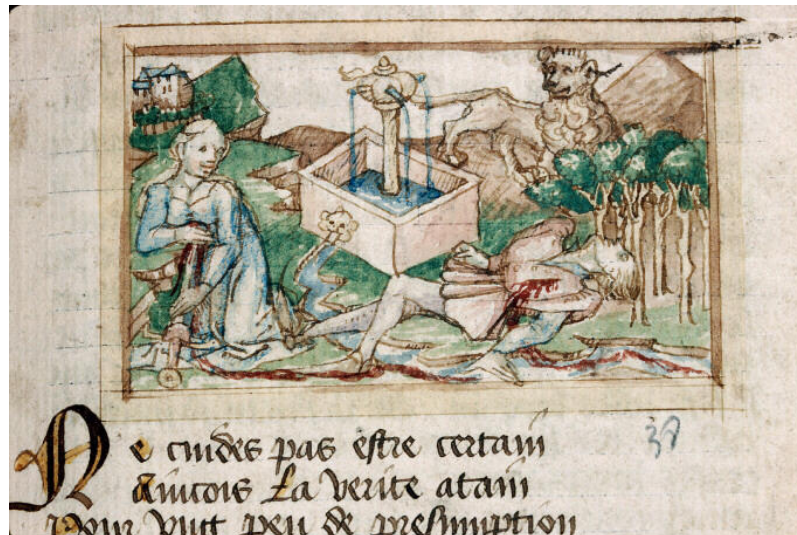 Ne cuides pas estre certain
Aincois La verite atain
Pour vng peu de presumption
38